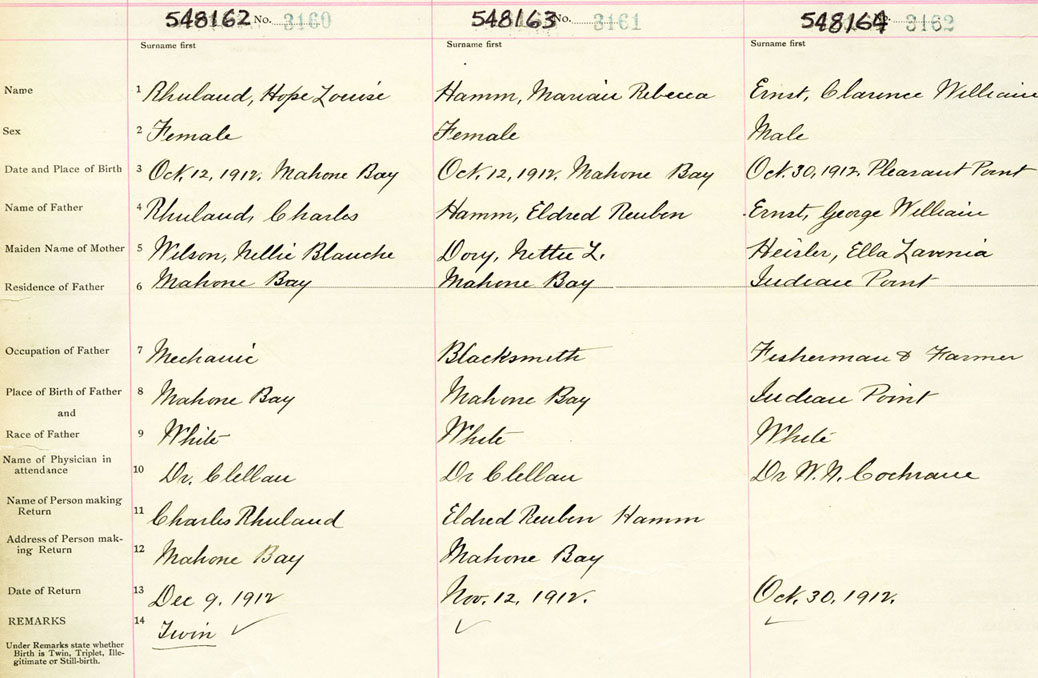 548162 No. 3160 548163 No. 3161 548164 3162
Surname first Surname first Surname first
Name 1 Rhuland, Hope Louise Hamm, Marian Rebecca Ernst, Clarence William
Sex 2 Female Female Male
Date and Place of Birth 3 Oct. 12, 1912. Mahone Bay Oct. 12, 1912. Mahone Bay Oct. 30, 1912. Pleasant Point
Name of Father 4 Rhuland, Charles Hamm, Eldred Reuben Ernst, George William
Maiden Name of Mother 5 Wilson, Nellie Blanche Dory, Nettie L. Heisler, Ella Lavenia
Residence of Father 6 Mahone Bay Mahone Bay Indian Point
Occupation of Father 7 Mechanic Blacksmith Fisherman & Farmer
Place of Birth of Father 8 Mahone Bay Mahone Bay Indian Point
and
Race of Father 9 White White White
Name of Physician in
attendance 10 Dr. Clellan Dr Clellan Dr W. N. Cochrane
Name of Person making
Return 11 Charles Rhuland Eldred Reuben Hamm
Address of Person mak-
ing Return 12 Mahone Bay Mahone Bay
Date of Return 13 Dec 9. 1912 Nov. 12, 1912. Oct. 30, 1912.
REMARKS 14 Twin ✓ ✓ ✓
Under Remarks state whether
Birth is Twin, Triplet, Ille-
gitimate or Still-birth.